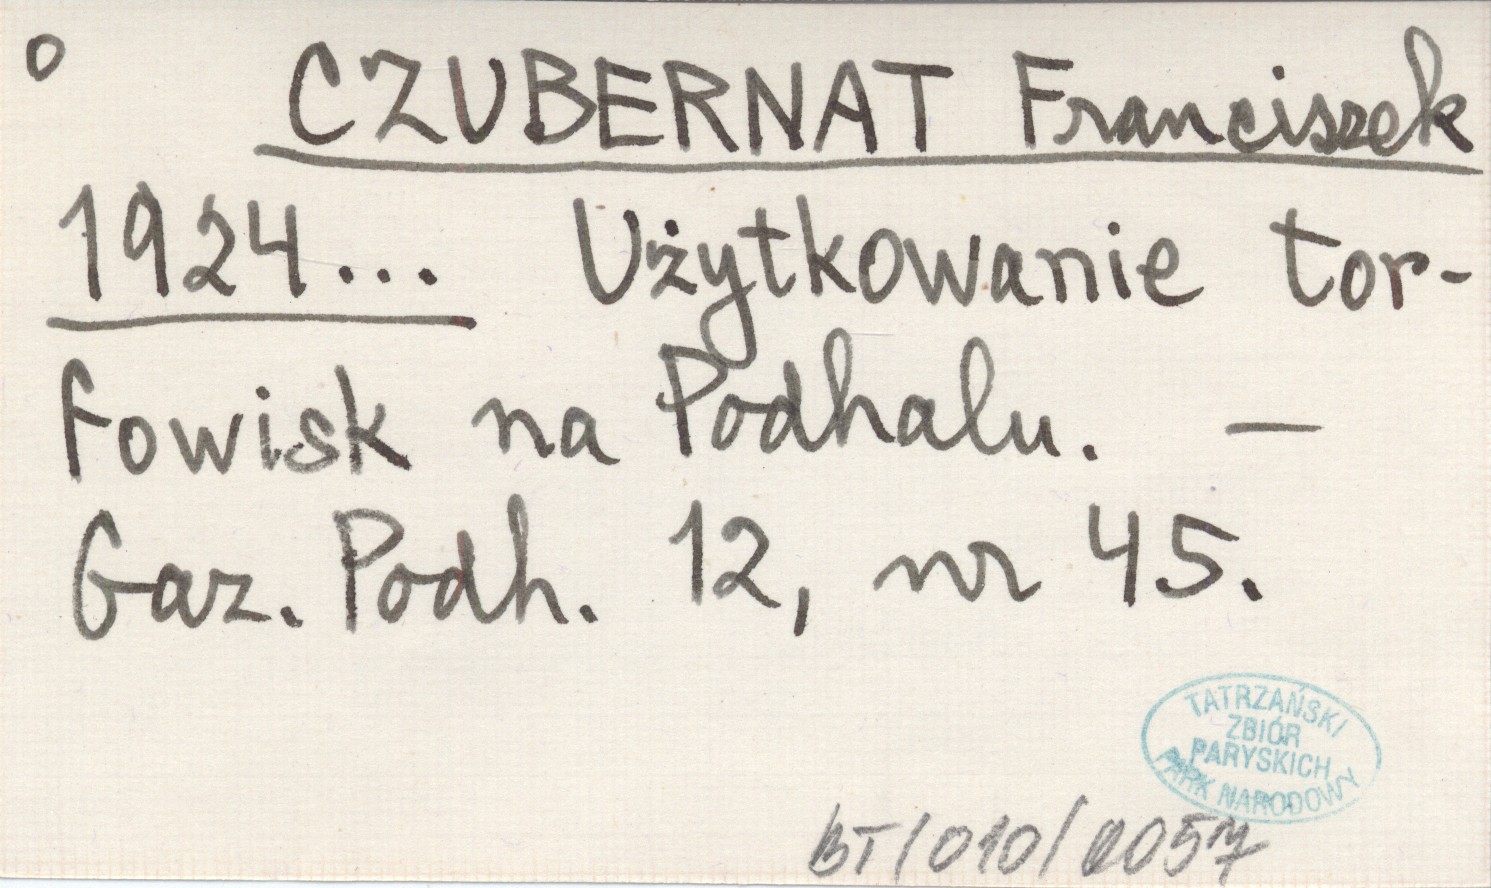 o CZUBERNAT Franciszek
1924... Użytkowanie tor-
fowisk na Podhalu. —
Gaz. Podh. 12, nr 45.
TATRZAŃSKI
ZBIÓR
PARYSKICH
PARK NARODOWY
BT/010/0057